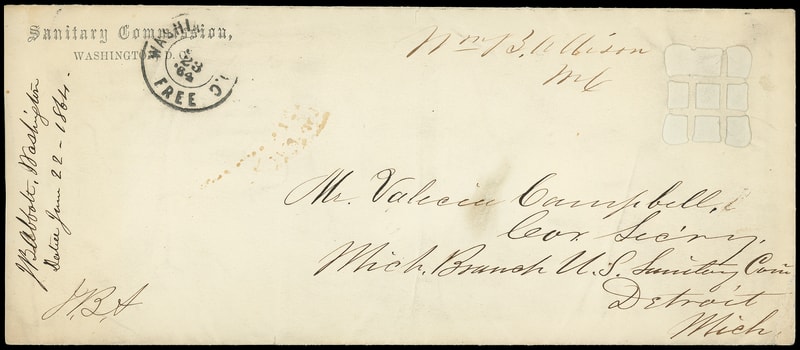 Sanitary Commission,
WASHINGTON, D.C.
WASHI D.C.
23
'64
FREE
Wm B. Allison
M C
J.B. Abbott, Washington
Date June 22 - 1864.
J.B.A
Mr. Valecia Campbell,
Cor. Sec'ry.
Mich. Branch U.S. Sanitary Com
Detroit
Mich.